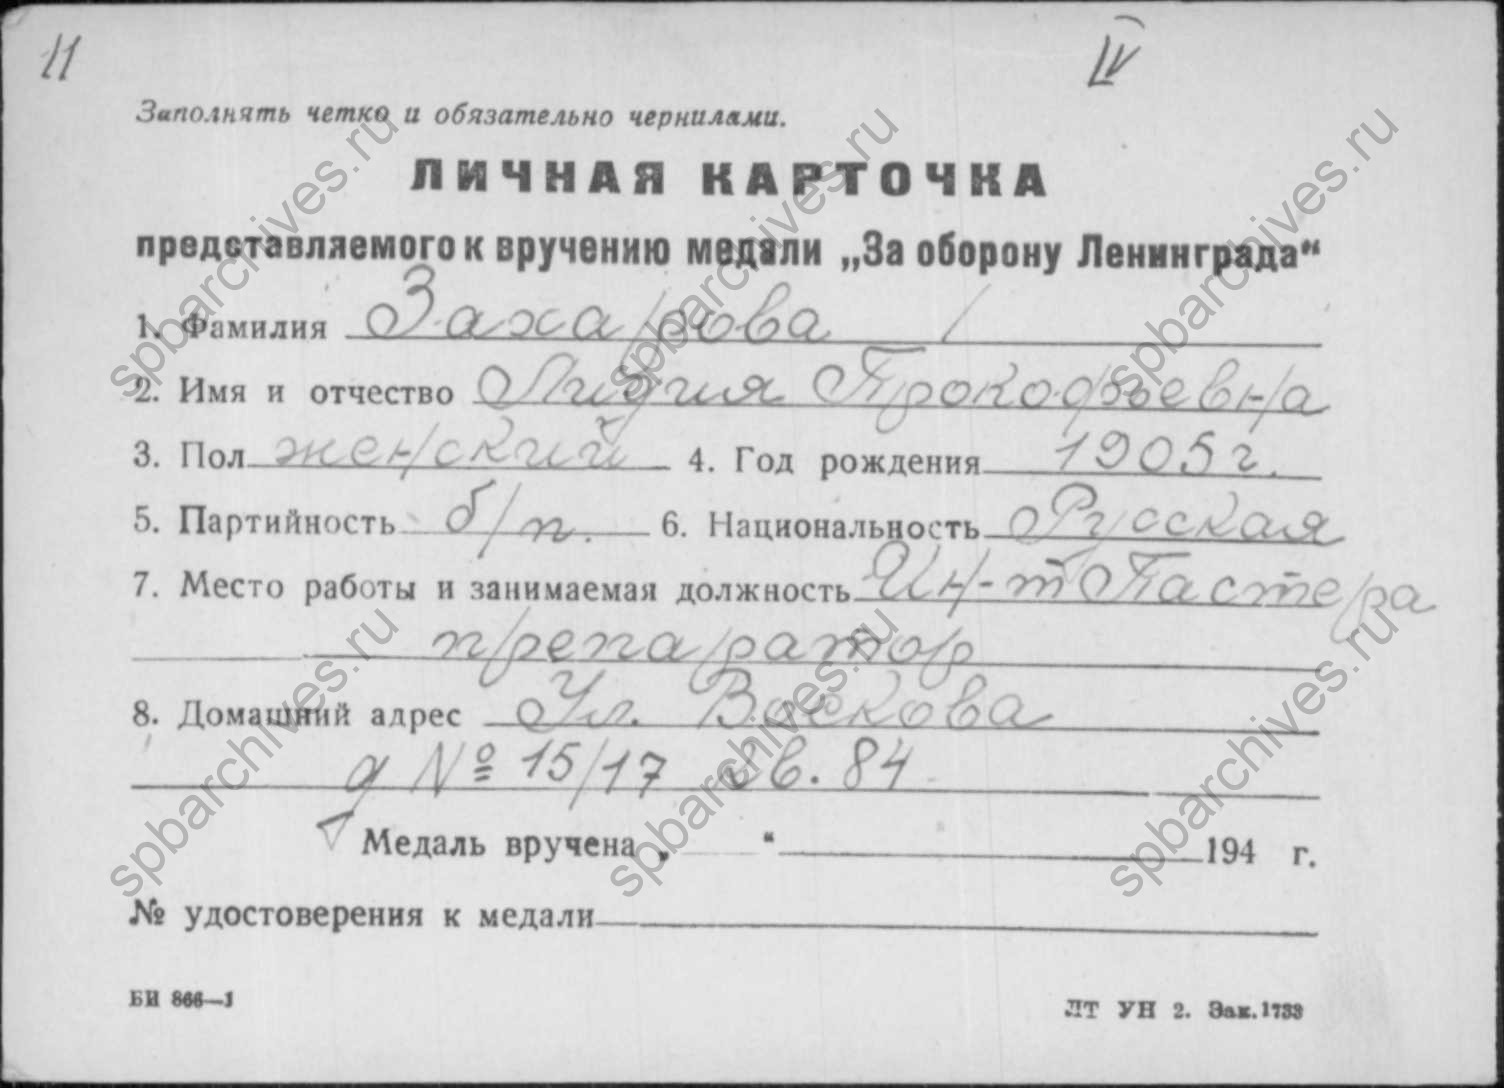 11 IV
Заполнять четко и обязательно чернилами.
ЛИЧНАЯ КАРТОЧКА
представляемого к вручению медали „За оборону Ленинграда“
1. Фамилия Захарова /
2. Имя и отчество Лидия Прокофьевна
3. Пол женский 4. Год рождения 1905 г.
5. Партийность б/п. 6. Национальность Русская
7. Место работы и занимаемая должность Ин-т Пастера
препаратор
8. Домашний адрес Ул. Воскова
д № 15/17 кв. 84
Медаль вручена „ “ 194 г.
№ удостоверения к медали
БИ 866—1 ЛТ УН 2. Зак. 1733
spbarchives.ru spbarchives.ru spbarchives.ru
spbarchives.ru spbarchives.ru spbarchives.ru